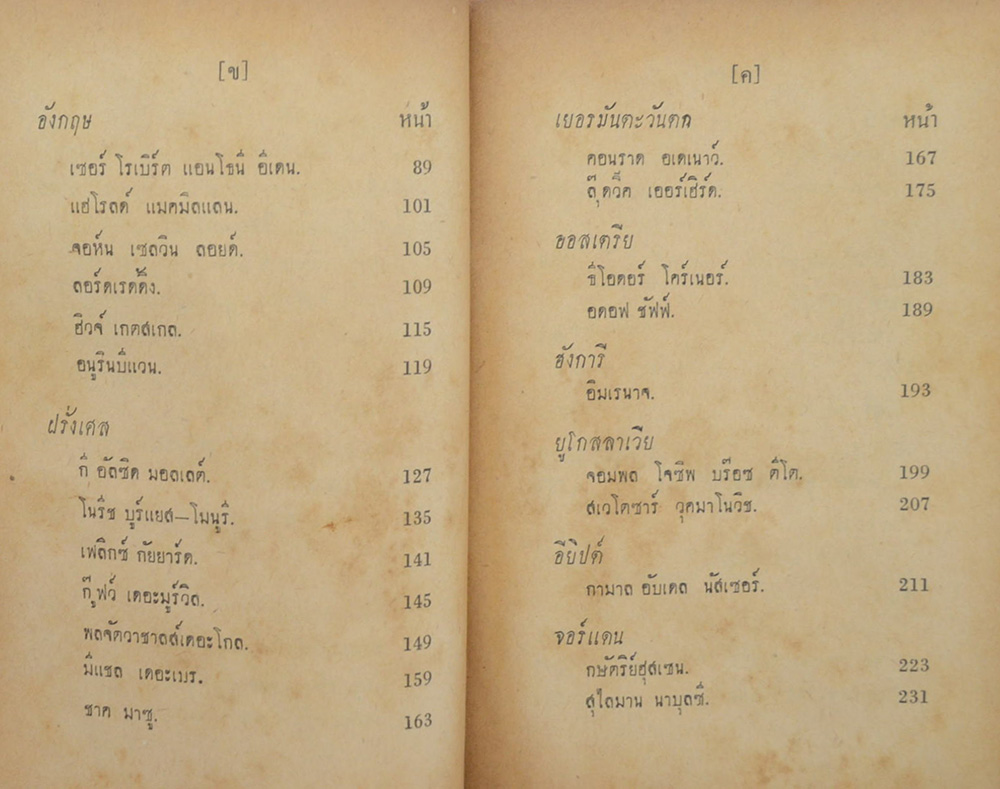 [ข]
อังกฤษ หน้า
เซอร์ โรเบิร์ต แอนโธนี่ อีเดน. 89
แฮโรลด์ แมคมิลแลน. 101
จอห์น เซลวิน ลอยด์. 105
ลอร์ดเรดดิ้ง. 109
ฮิวจ์ เกตสเกล. 115
อนูรินบีแวน. 119
ฝรั่งเศส
กี อัลซิด มอลเลต์. 127
โนรีช บูร์แยส—โมนูรี่. 135
เฟลิกซ์ กัยยาร์ด. 141
กู๊ฟว์ เดอะมูร์วิล. 145
พลจัตวาชาลส์เดอะโกล. 149
มีแชล เดอะเบร. 159
ชาค มาซู. 163
[ค]
เยอรมันตะวันตก หน้า
คอนราด อเดเนาว์. 167
ลุ๊ดวิ๊ค เออร์เฮิร์ด. 175
ออสเตรีย
ธีโอดอร์ โคร์เนอร์. 183
อดอฟ ชัฟฟ์. 189
ฮังการี
อิมเรนาจ. 193
ยูโกสลาเวีย
จอมพล โจซิพ บร๊อซ ตีโต. 199
สเวโตซาร์ วุคมาโนวิช. 207
อียิปต์
กามาล อับเดล นัสเซอร์. 211
จอร์แดน
กษัตริย์ฮุสเซน. 223
สุไลมาน นาบุลซี่. 231